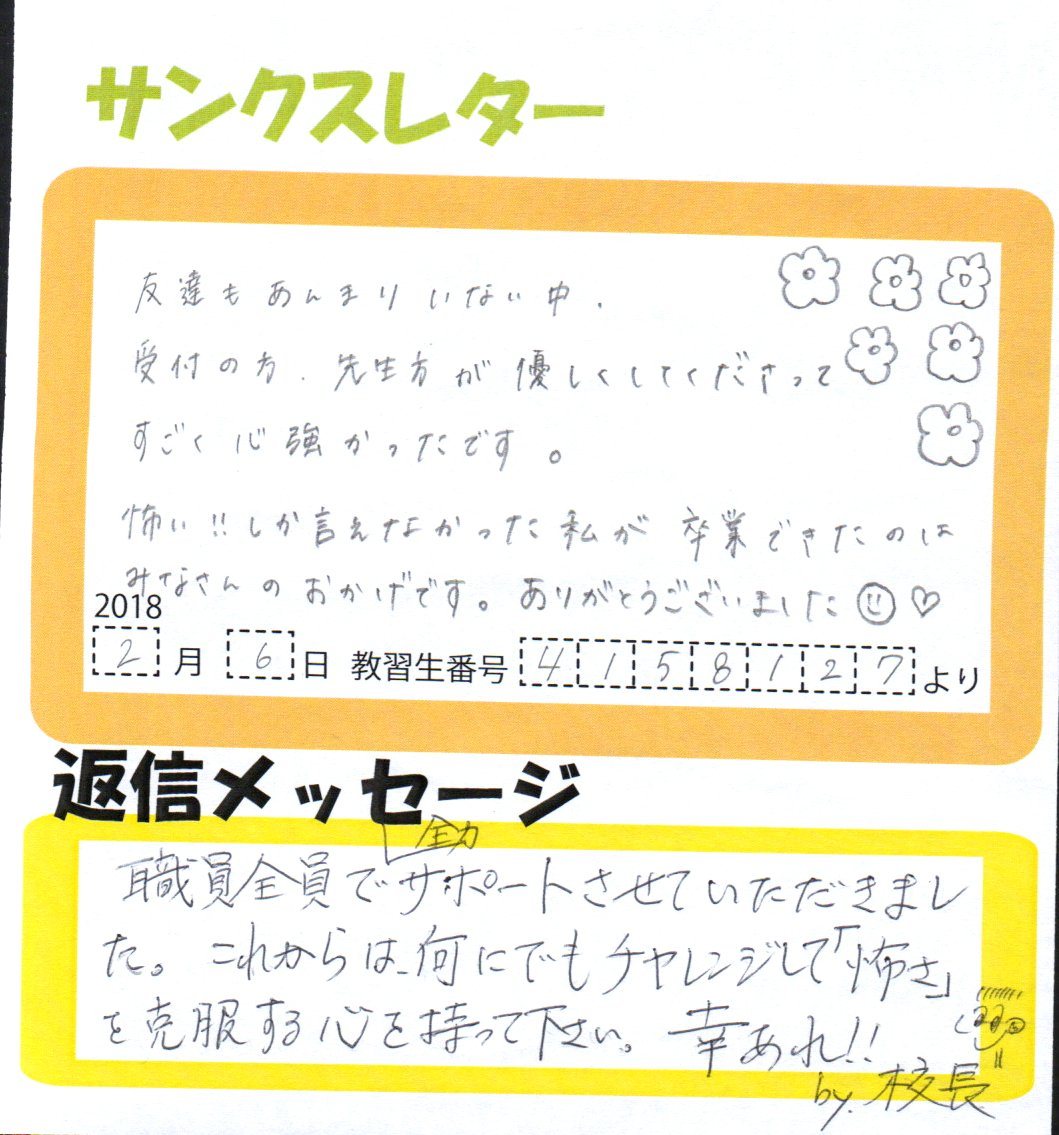 サンクスレター
友達もあんまりいない中、
受付の方、先生方が優しくしてくださって
すごく心強かったです。
怖い!!しか言えなかった私が卒業できたのは
みなさんのおかげです。ありがとうございました
2018
2月 6日 教習生番号 4158127より
返信メッセージ
全力
職員全員でサポートさせていただきまし
た。これからは、何にでもチャレンジして「怖さ」
を克服する心を持って下さい。幸あれ!!
by.校長